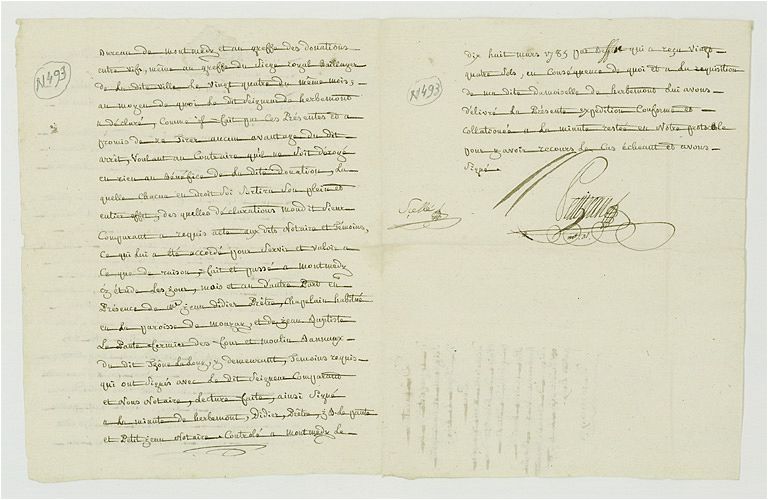 N 493
Bureau de Montmedy et au greffe des donations
entre vifs, même au greffe du Siege royal Bailliager
de la dite ville le vingt quatre du même mois;
au moyen de quoi le dit Seigneur de herbemont
a déclaré, comme il fait par ces Présentes et a
promis de ne Tirer aucun avantage du dit
arrêt, Voulant au Contraire qu'il ne Soit dérogé
en rien au Bénéfice de la dite donation, la
quelle Chacun en droit Soi Sortira Son plein et
entier effet; des quelles déclarations mondit Sieur
Comparant a requis acte aux dits Notaire et Témoins,
Ce qui lui a été accordé pour Servir et valoir a
Ce que de raison; fait et passé a Montmedy
les jour, mois et an d'autre Part en
Présence de Mr. jean Didier Prêtre, Chapelain habitué
en la paroisse de mouzay, et de jean Baptiste
Le Pante fermier des four et moulin Bannaux
du dit y demeurant, Temoins requis
qui ont Signés avec le dit Seigneur Comparant
et Nous Notaire, Lecture faite, ainsi Signé
a la minute de herbemont, Didier, Prêtre, J B Le pante
et Petit jean Notaire. Controlé a Montmedy le
N 493
dix huit mars 1785 par qui a reçu Vingt
quatre Sols, en Conséquence de quoi et a la requisition
de ma dite damoiselle de herbemont lui avons
délivré la Présente expédition Conforme et
Collationnée a la minute restée en Notre protocole
pour y avoir recours le Cas échéant et avons
Signé
Scellé